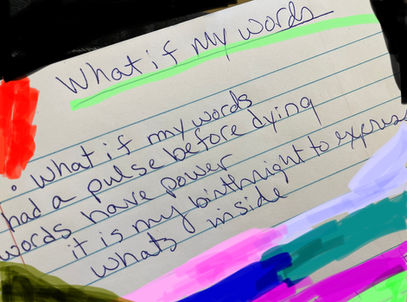 What if my words
• what if my words
had a pulse before dying
words have power
it is my birthright to express
whats inside